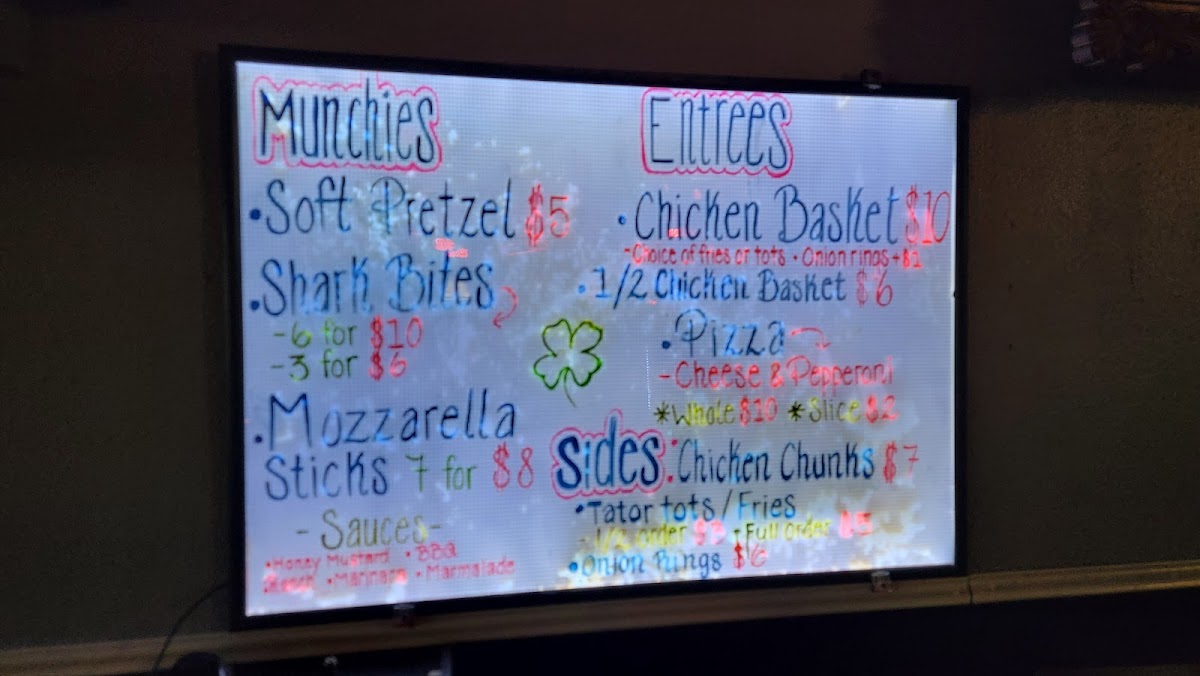 Munchies
• Soft Pretzel $5
• Shark Bites
- 6 for $10
- 3 for $6
• Mozzarella
Sticks 7 for $8
- Sauces -
• Honey Mustard • BBQ
• Marinara • Marmalade
Entrees
• Chicken Basket $10
- Choice of fries or tots • Onion rings + $1
• 1/2 Chicken Basket $6
• Pizza
- Cheese & Pepperoni
* Whole $10 * Slice $2
Sides: Chicken Chunks $7
• Tator tots / Fries
- 1/2 order $3 - Full order $5
• Onion Rings $6